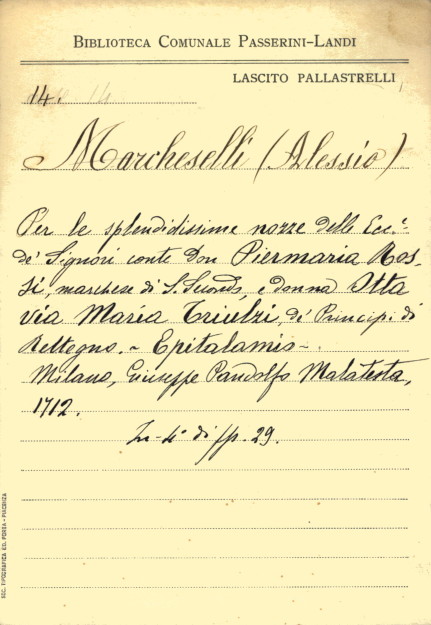 BIBLIOTECA COMUNALE PASSERINI-LANDI
LASCITO PALLASTRELLI
14.
Marcheselli (Alessio)
Per le splendidissime nozze delle Ecc.e
de' Signori conte Don Piermaria Ros-
si, marchese di S. Secondo, e donna Otta
via Maria Triulzi, de' Principi di
Rettegno. - Epitalamio -
Milano, Giuseppe Pandolfo Malatesta,
1712.
In-4° di pp. 29.
SOC. TIPOGRAFICA ED. PORTA - PIACENZA